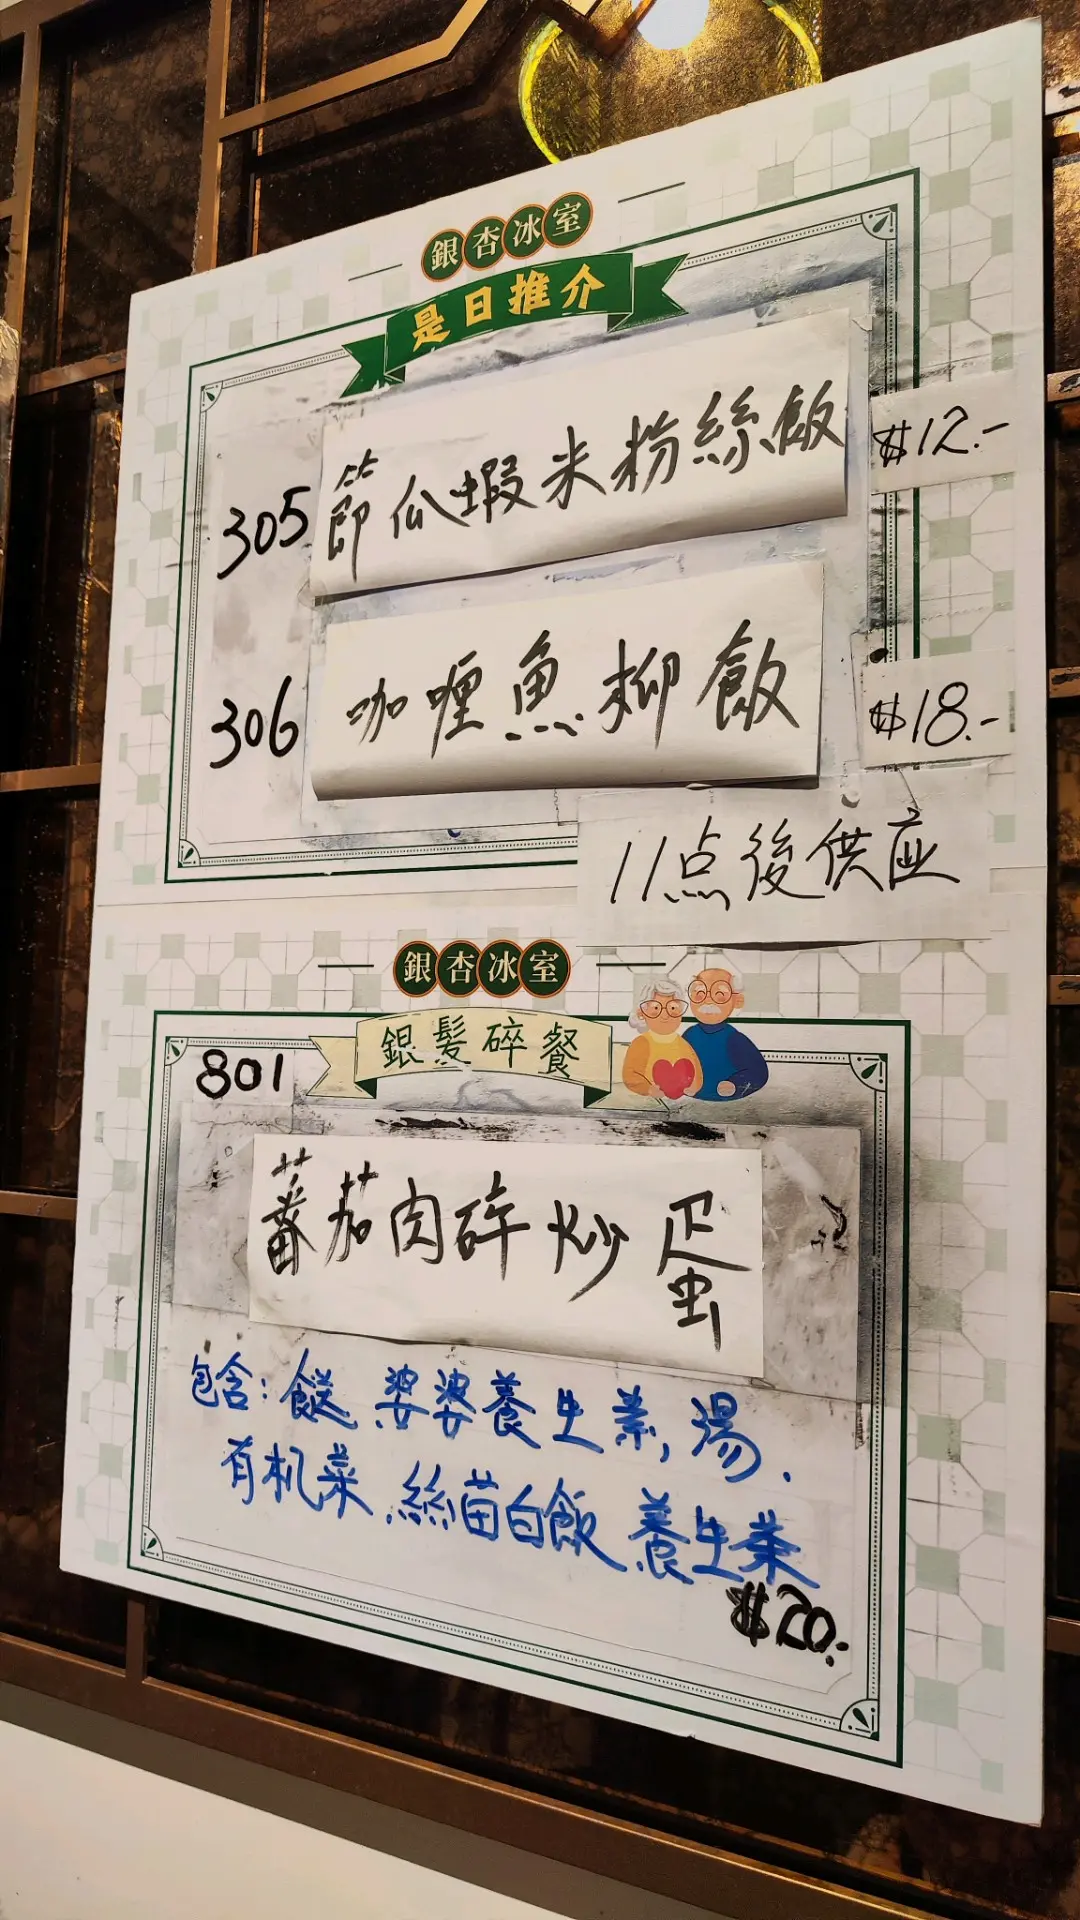 銀杏冰室
是日推介
305 節瓜蝦米粉絲飯 $12.-
306 咖喱魚柳飯 $18.-
11点後供应
銀杏冰室
銀髮碎餐
801
蕃茄肉碎炒蛋
包含: 餸 婆婆養生
湯.
有机菜 絲苗白飯 養生
$20.